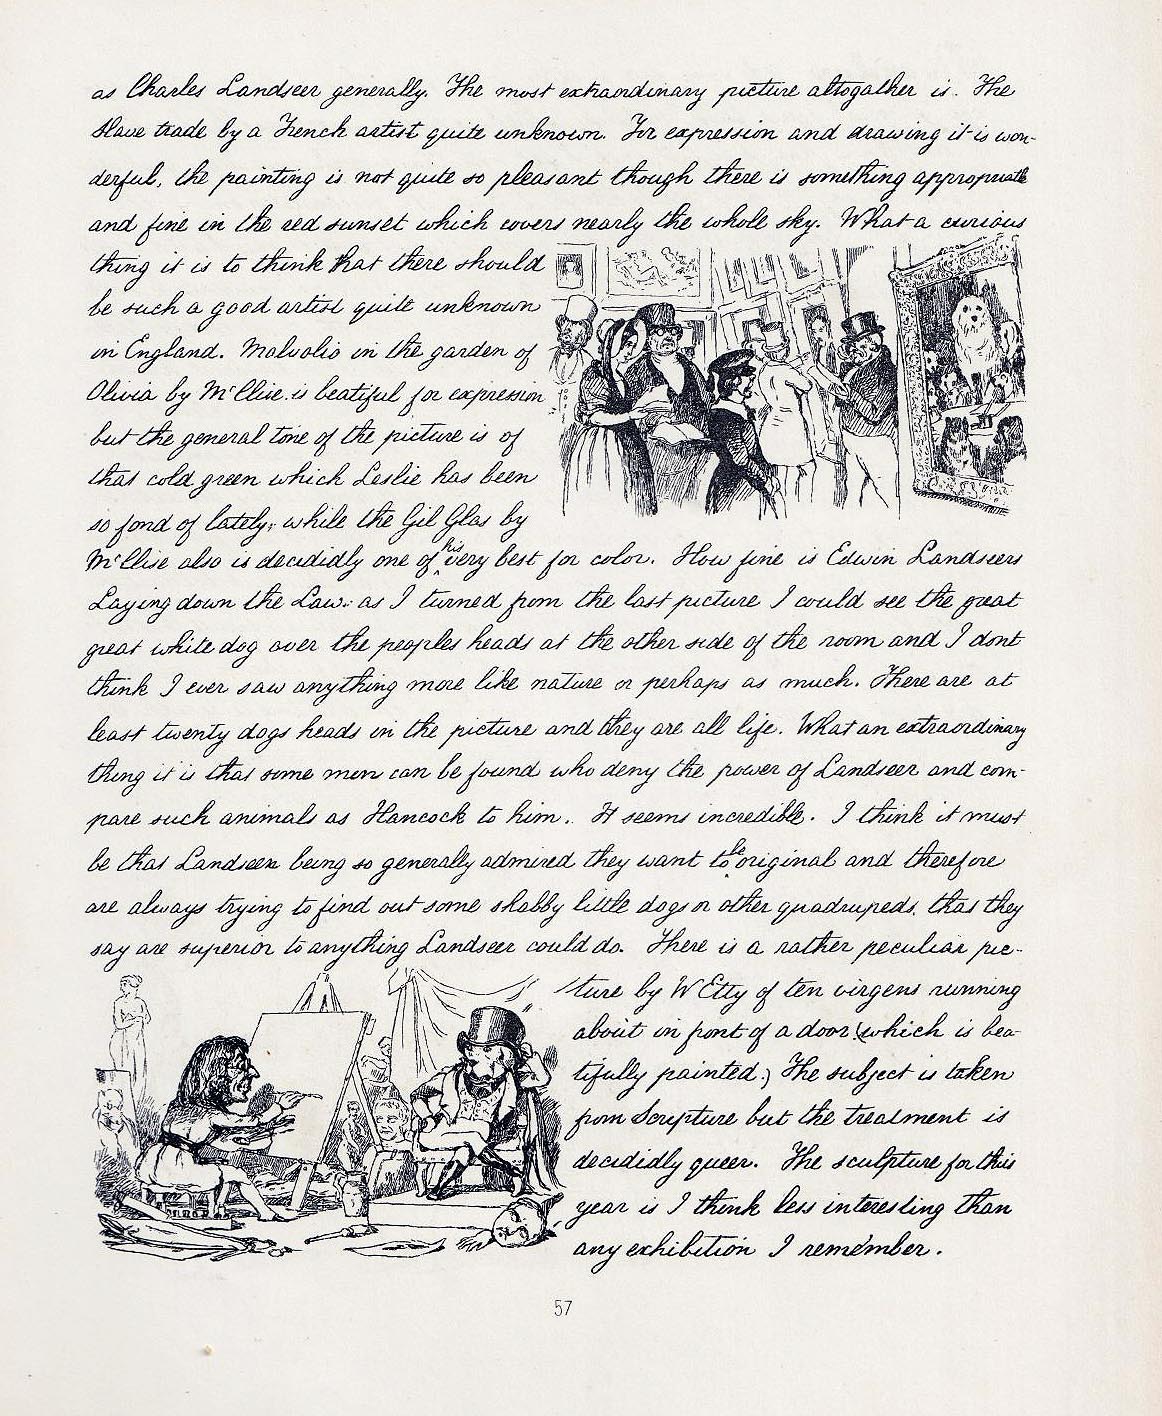 as Charles Landseer generally. The most extraordinary picture altogather is. The
Slave trade by a French artist quite unknown. For expression and drawing it is won-
derful, the painting is not quite so pleasant though there is something appropriate
and fine in the red sunset which covers nearly the whole sky. What a curious
thing it is to think that there should
be such a good artist quite unknown
in England. Malvolio in the garden of
Olivia by McClise is beatiful for expression
but the general tone of the picture is of
that cold green which Leslie has been
so fond of lately; while the Gil Glas by
McClise also is decididly one of his very best for color. How fine is Edwin Landseers
Laying down the Law. as I turned from the last picture I could see the great
great white dog over the peoples heads at the other side of the room and I dont
think I ever saw anything more like nature or perhaps as much. There are at
least twenty dogs heads in the picture and they are all life. What an extraordinary
thing it is that some men can be found who deny the power of Landseer and com-
pare such animals as Hancock to him. It seems incredible. I think it must
be that Landseer being so generally admired they want to be original and therefore
are always trying to find out some shabby little dogs or other quadrupeds, that they
say are superior to anything Landseer could do. There is a rather peculiar pic-
ture by W Etty of ten virgens running
about in front of a door (which is bea-
tifully painted.) The subject is taken
from Scripture but the treatment is
decididly queer. The sculpture for this
year is I think less interesting than
any exhibition I remember.
57